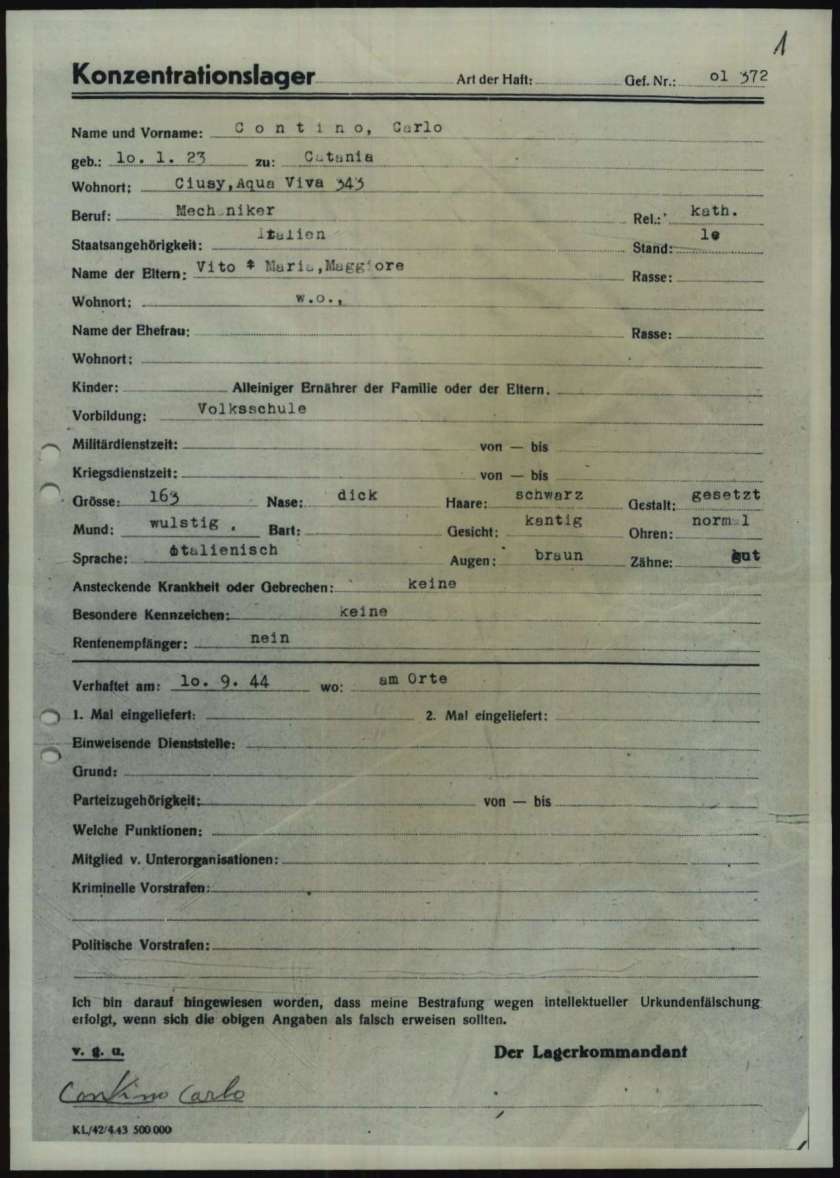 1
Konzentrationslager Art der Haft: Gef. Nr.: ol 372
Name und Vorname: Contino, Carlo
geb.: lo. 1. 23 zu: Catania
Wohnort: Ciusy, Aqua Viva 343
Beruf: Mechaniker Rel.: kath.
Staatsangehörigkeit: Italien Stand: le
Name der Eltern: Vito * Maria, Maggiore Rasse:
Wohnort: w.o.,
Name der Ehefrau: Rasse:
Wohnort:
Kinder: Alleiniger Ernährer der Familie oder der Eltern.
Vorbildung: Volksschule
Militärdienstzeit: von — bis
Kriegsdienstzeit: von — bis
Grösse: 163 Nase: dick Haare: schwarz Gestalt: gesetzt
Mund: wulstig. Bart: Gesicht: kantig Ohren: normal
Sprache: italienisch Augen: braun Zähne: gut
Ansteckende Krankheit oder Gebrechen: keine
Besondere Kennzeichen: keine
Rentenempfänger: nein
Verhaftet am: lo. 9. 44 wo: am Orte
1. Mal eingeliefert: 2. Mal eingeliefert:
Einweisende Dienststelle:
Grund:
Parteizugehörigkeit: von — bis
Welche Funktionen:
Mitglied v. Unterorganisationen:
Kriminelle Vorstrafen:
Politische Vorstrafen:
Ich bin darauf hingewiesen worden, dass meine Bestrafung wegen intellektueller Urkundenfälschung
erfolgt, wenn sich die obigen Angaben als falsch erweisen sollten.
v. g. u. Der Lagerkommandant
Contino Carlo
KL/42/4.43 500 000